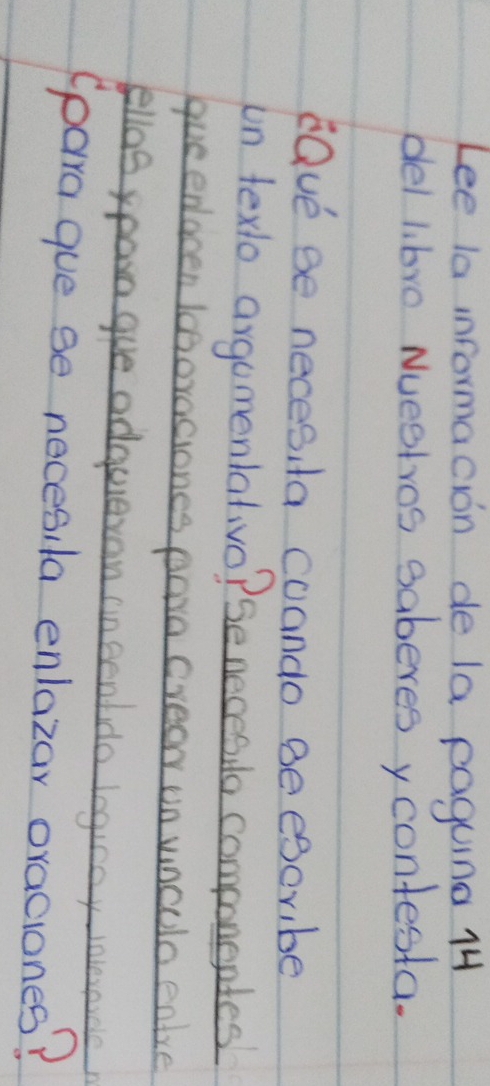 Lee la información de la paguina 14
del libro Nuestros saberes y contesta.
¿Qué se necesita cuando se escribe
un texto argumentativo? Se necesita componentes
que enlacen las oraciones para crear un vinculo entre
ellas y para que adquieran un sentido logico y
¿para que se necesita enlazar oraciones?